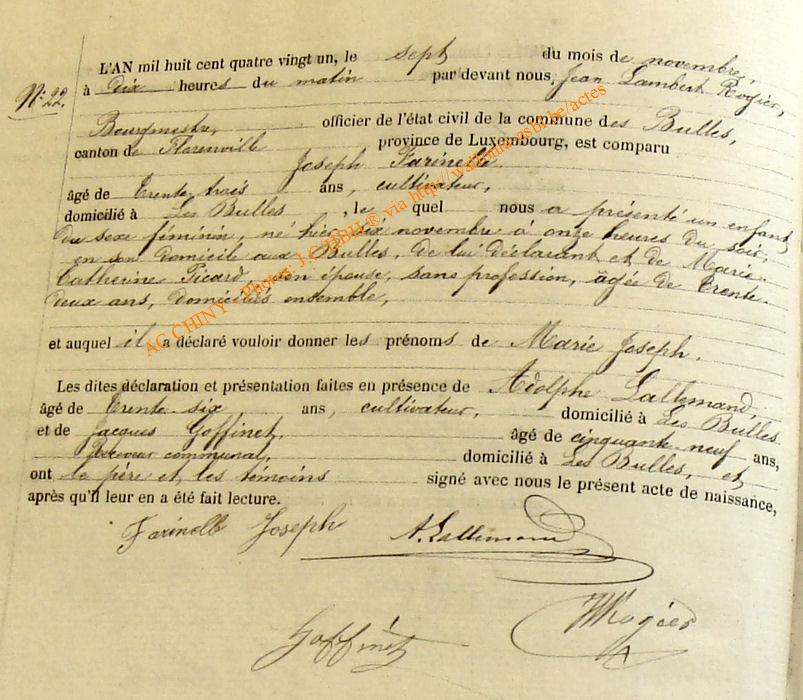 L'AN mil huit cent quatre vingt un, le sept du mois de novembre,
à dix heures du matin par devant nous, Jean Lambert Rogier,
N° 22.
Bourgmestre, officier de l'état civil de la commune des Bulles,
canton de Florenville province de Luxembourg, est comparu
Joseph Farinelle
âgé de trente trois ans, cultivateur,
domicilié à Les Bulles, le quel nous a présenté un enfant
du sexe féminin, né hier, six novembre à onze heures du soir,
en son domicile aux Bulles, de lui déclarant et de Marie
Catherine Picard son épouse, sans profession, âgée de trente
deux ans, domiciliés ensemble,
et auquel il a déclaré vouloir donner les prénoms de Marie Joseph.
Les dites déclaration et présentation faites en présence de Adolphe Lallemand,
âgé de trente six ans, cultivateur, domicilié à Les Bulles
et de Jacques Goffinet, âgé de cinquante neuf ans,
Receveur communal, domicilié à Les Bulles, et
ont le père et les témoins signé avec nous le présent acte de naissance,
après qu'il leur en a été fait lecture.
Farinelle Joseph A. Lallemand
Goffinet Rogier
AC CHINY - Photos J.C. ® via http://wallonia.asbl.be/actes